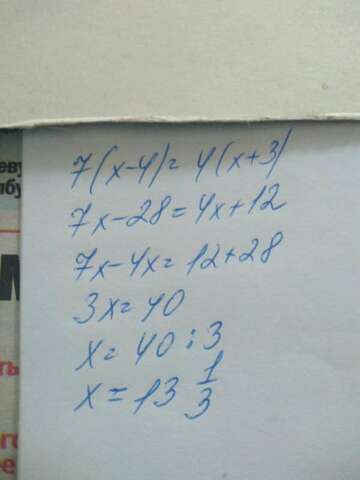 7(x-4)= 4(x+3)
7x-28=4x+12
7x-4x=12+28
3x=40
x=40:3
x=13 1/3